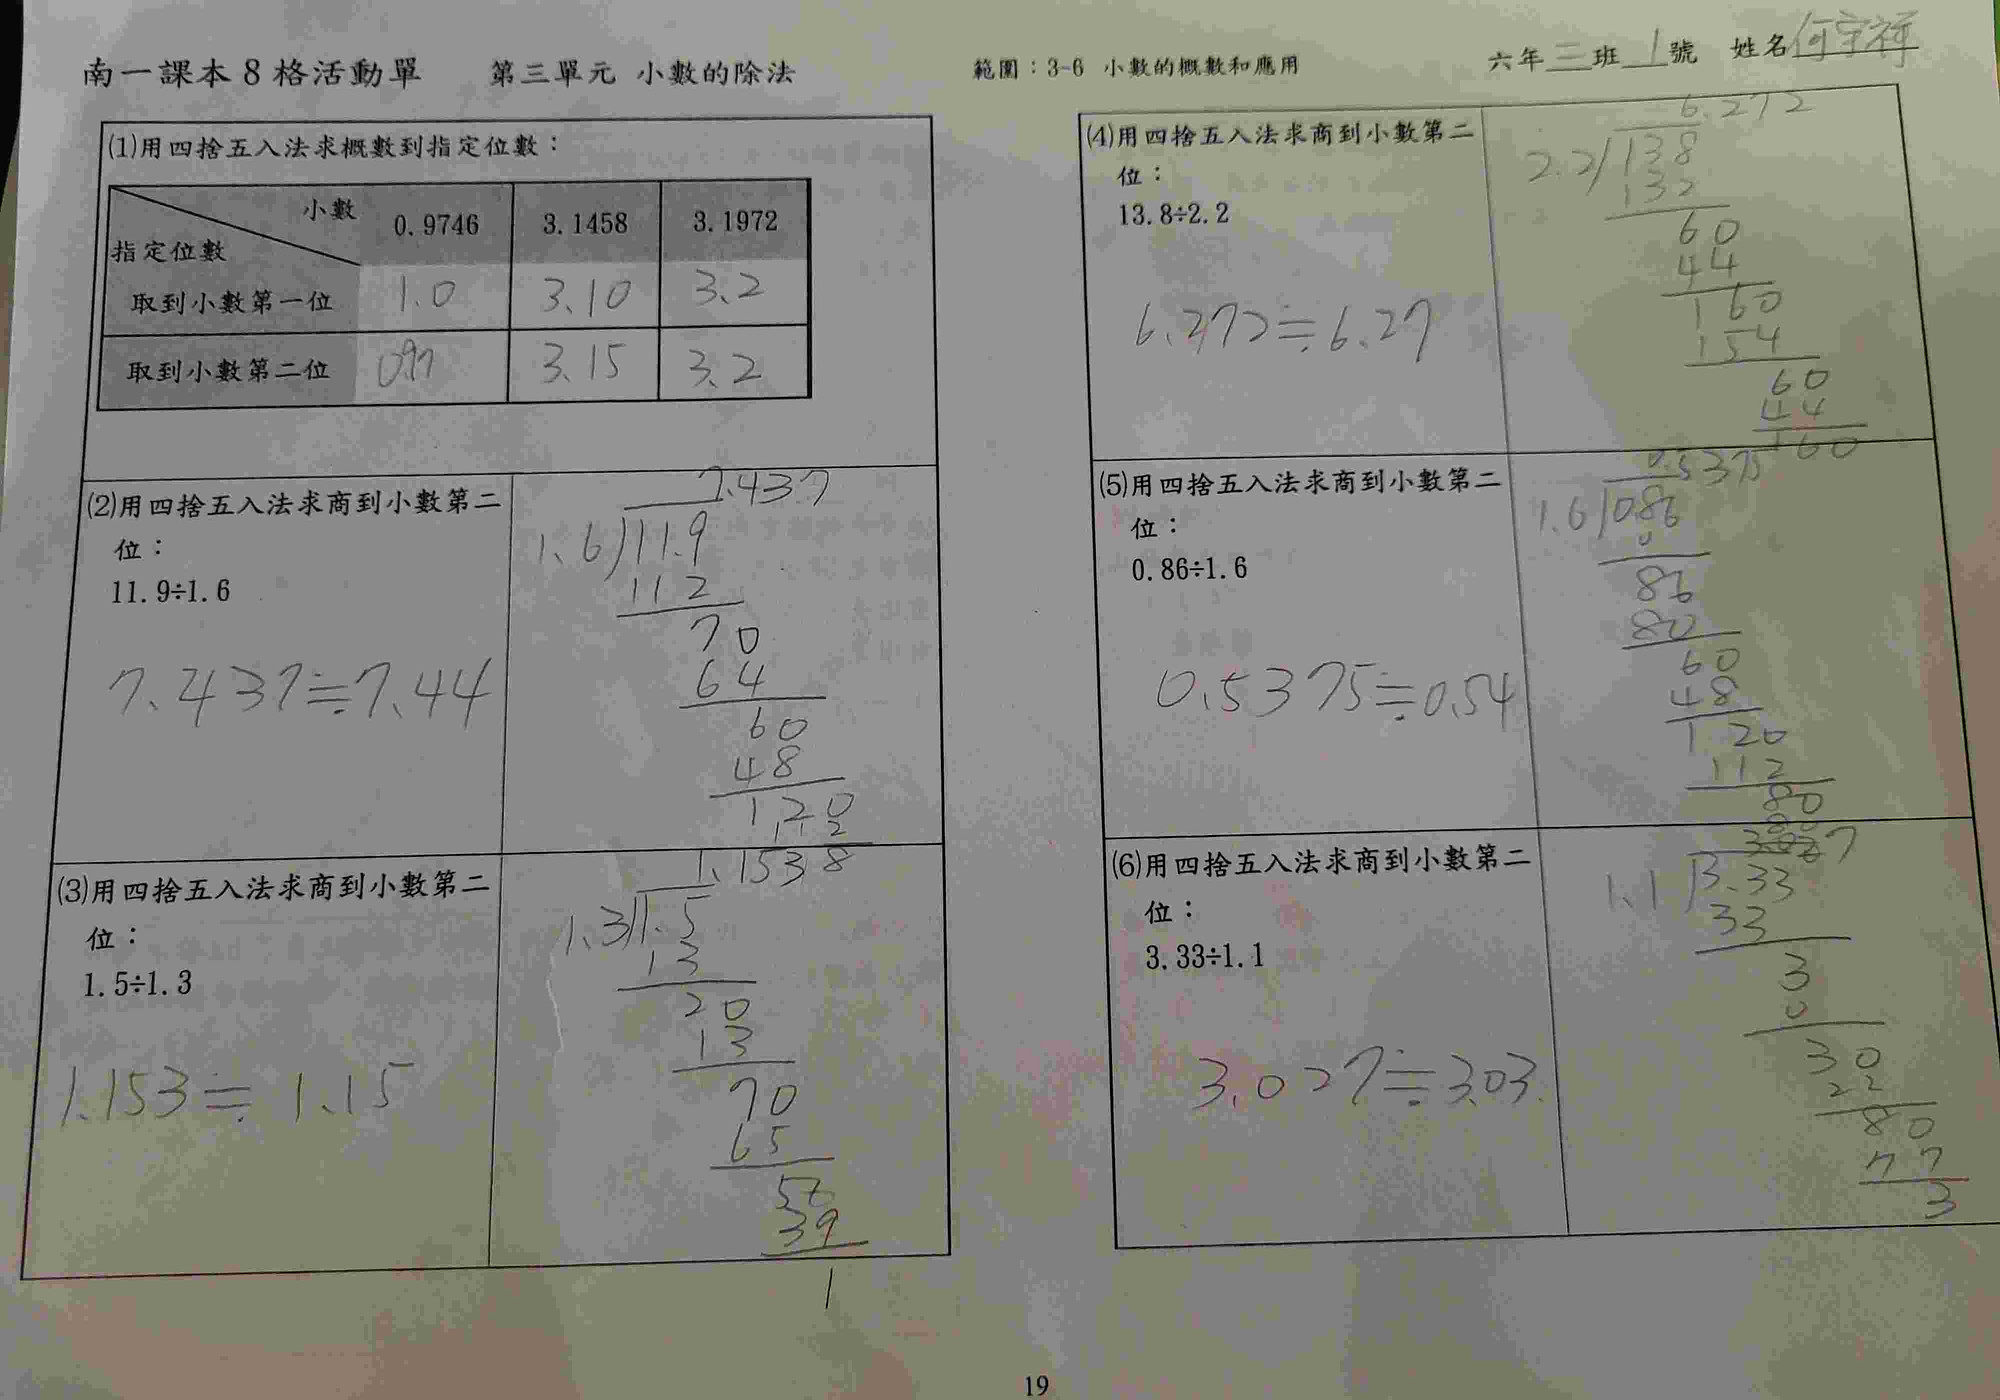 南一課本8格活動單 第三單元 小數的除法 範圍：3-6 小數的概數和應用 六年三班1號 姓名何宇祥
(1)用四捨五入法求概數到指定位數：
小數 0.9746 3.1458 3.1972
指定位數
取到小數第一位 1.0 3.10 3.2
取到小數第二位 0.97 3.15 3.2
(2)用四捨五入法求商到小數第二
位：
11.9÷1.6
7.437≒7.44
7.437
1.6)11.9
112
70
64
60
48
120
112
8
(3)用四捨五入法求商到小數第二
位：
1.5÷1.3
1.153≒1.15
1.153
1.3)1.5
13
20
13
70
65
50
39
1
(4)用四捨五入法求商到小數第二
位：
13.8÷2.2
6.272≒6.27
6.272
2.2)138
132
60
44
160
154
60
44
160
(5)用四捨五入法求商到小數第二
位：
0.86÷1.6
0.5375≒0.54
0.5375
1.6)0.86
0
86
80
60
48
120
112
80
80
(6)用四捨五入法求商到小數第二
位：
3.33÷1.1
3.027≒3.03
1.1)3.33
33
3
0
30
22
80
77
3
19